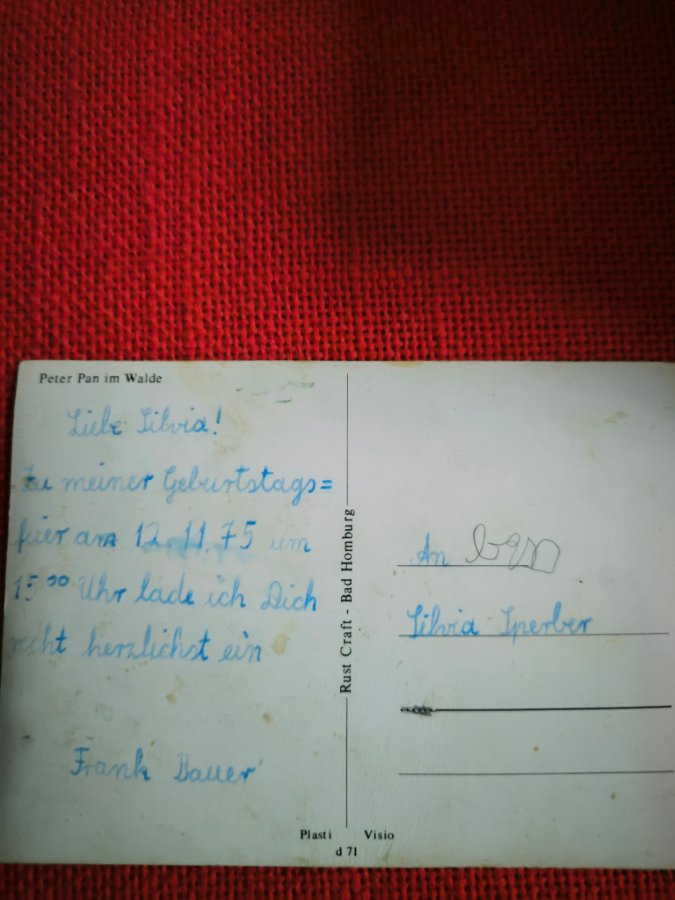 Peter Pan im Walde
Liebe Silvia!
Zu meiner Geburtstags=
feier am 12.11.75 um
15⁰⁰ Uhr lade ich Dich
recht herzlichst ein
Frank Bauer
Rust Craft - Bad Homburg
An
Silvia Sperber
Plasti Visio
d 71